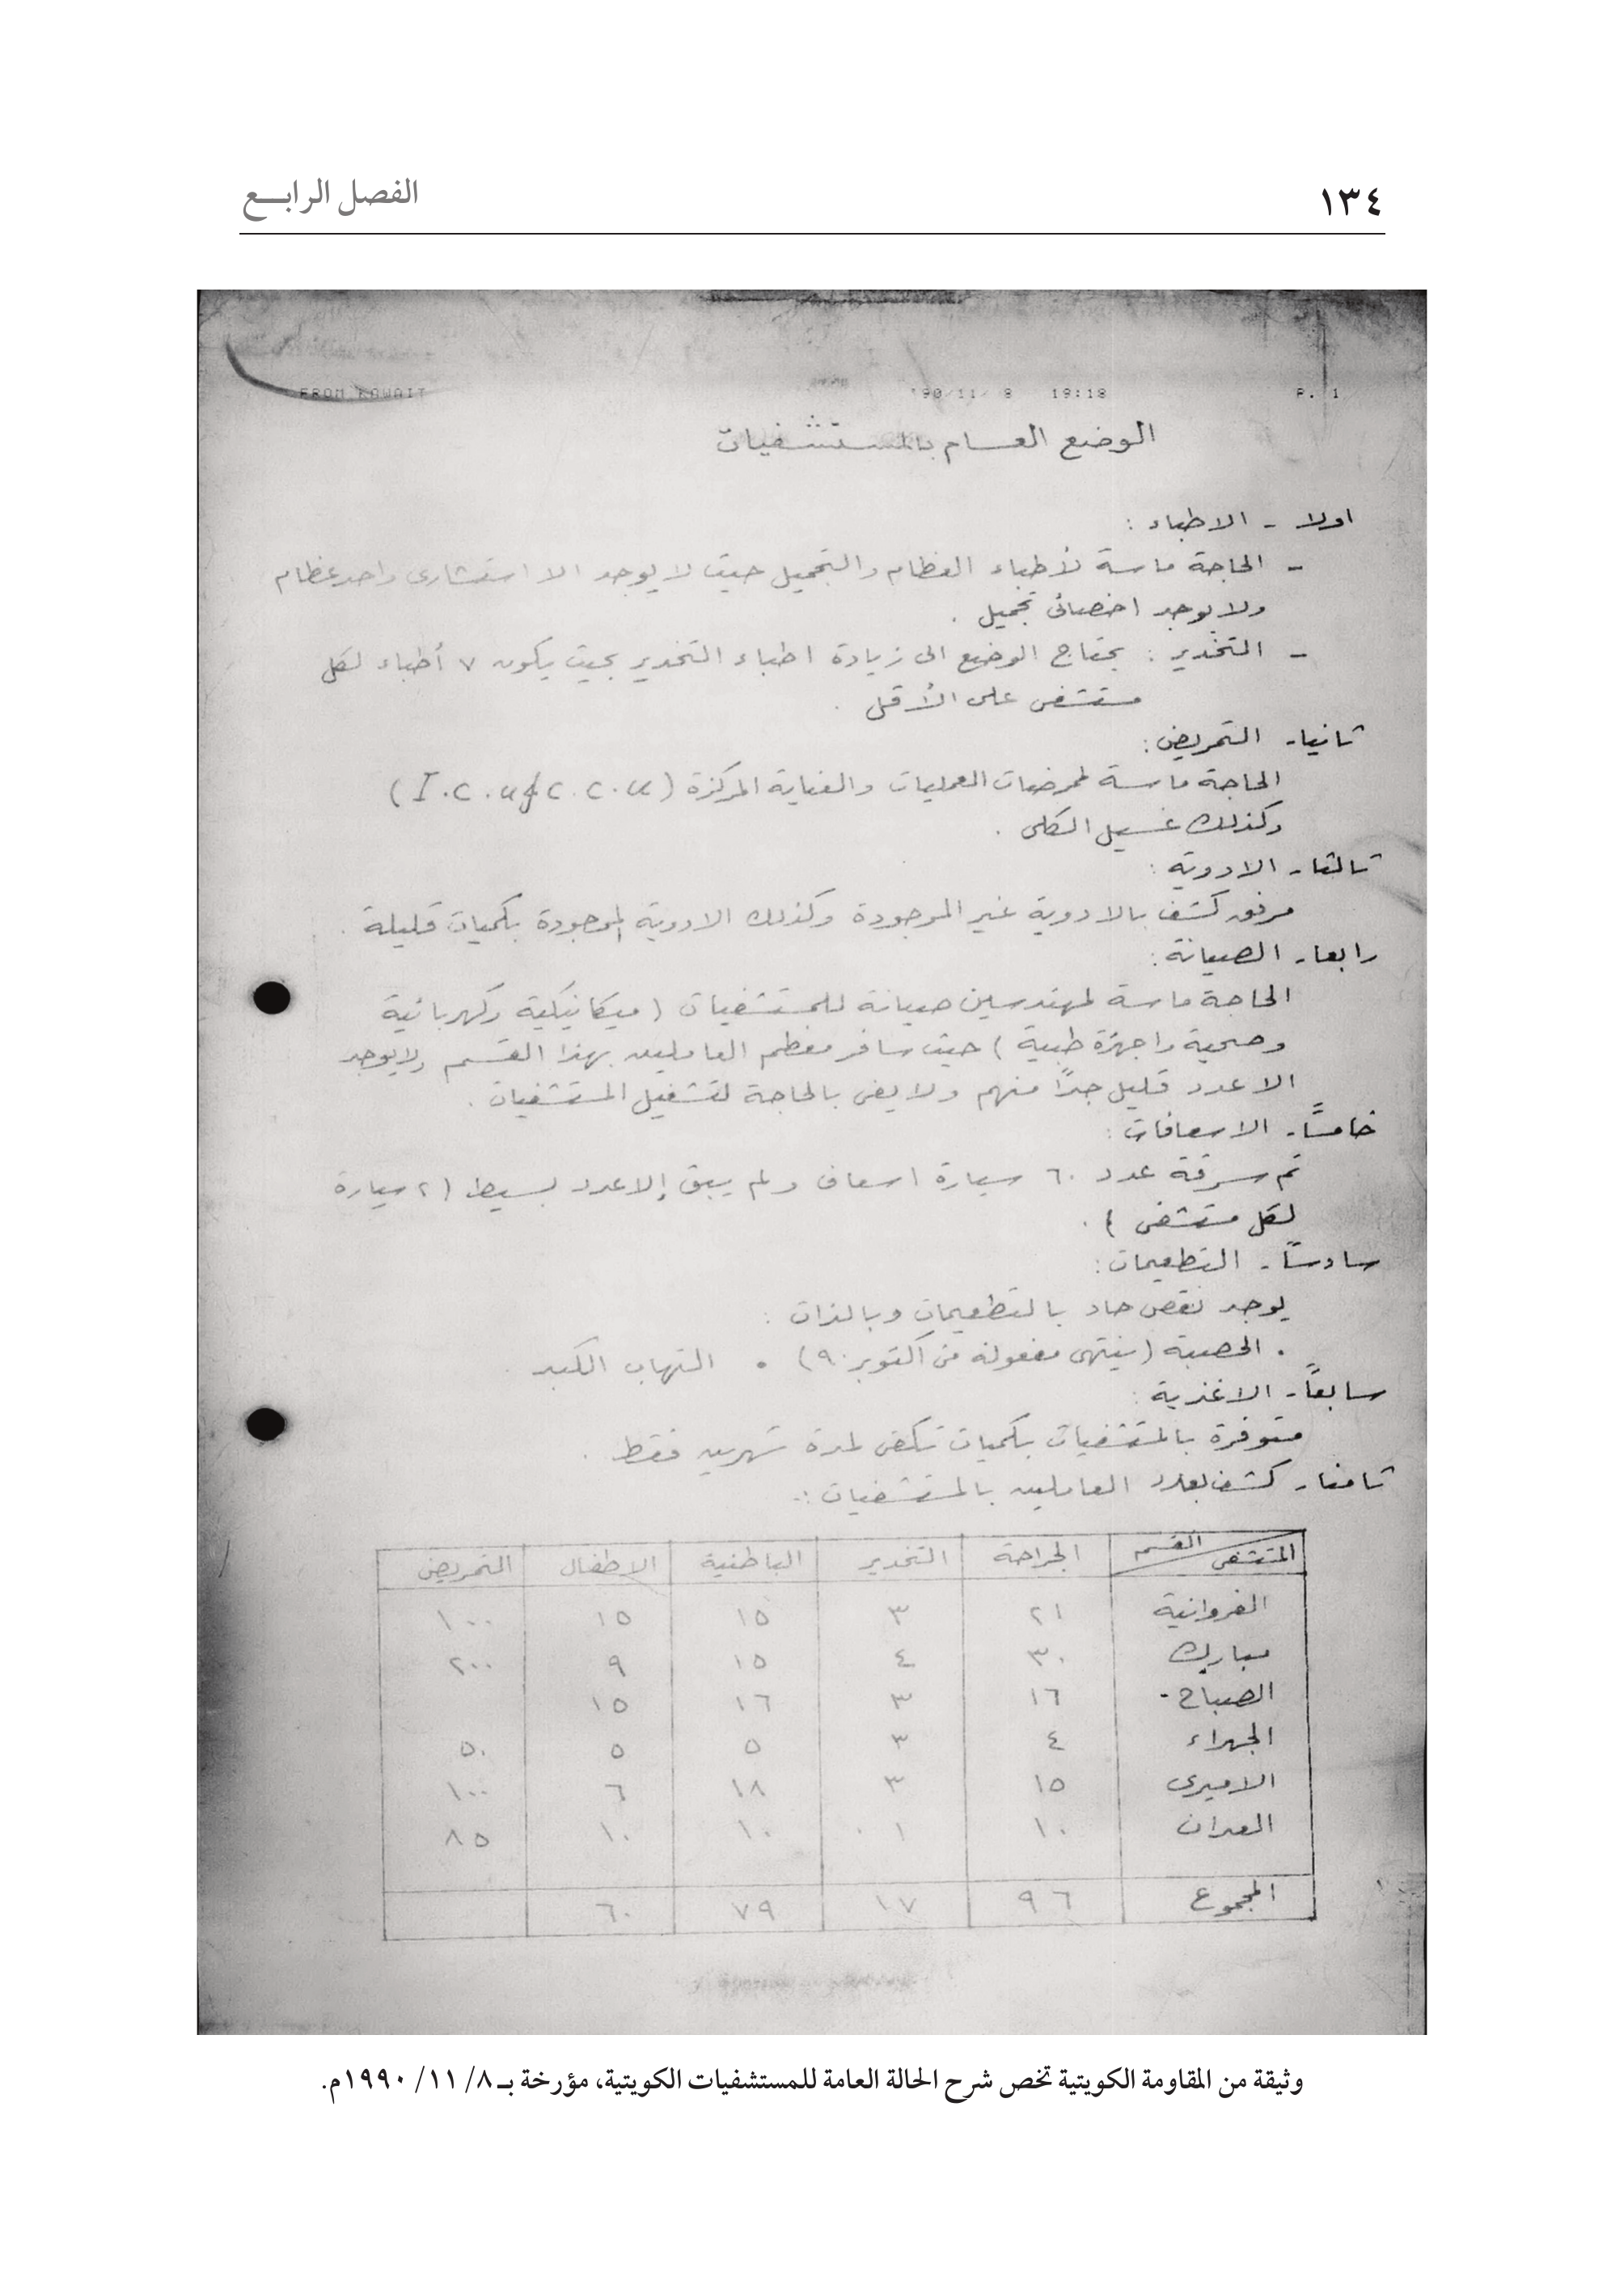 ١٣٤
الفصل الرابــع
FROM KAWAIT '90/11/ 8 19:18 P. 1
الوضع العـام بالمستشفيات
اولا - الاطباء :
- الحاجة ماسة لأطباء العظام والتجميل حيث لا يوجد الا استشارى واحد عظام
ولا يوجد اخصائى تجميل .
- التخدير : يحتاج الوضع الى زيادة اطباء التخدير بحيث يكون ٧ أطباء لكل
مستشفى على الأقل .
ثانيا - التمريض :
الحاجة ماسة لممرضات العمليات والعناية المركزة ( I.C.U / C.C.U )
وكذلك غسيل الكلى .
ثالثا - الادوية :
مرفق كشف بالادوية غير الموجودة وكذلك الادوية الموجودة بكميات قليلة .
رابعا - الصيانة :
الحاجة ماسة لمهندسين صيانة للمستشفيات ( ميكانيكية وكهربائية
وصحية واجهزة طبية ) حيث سافر معظم العاملين بهذا القسم ولا يوجد
الا عدد قليل جداً منهم ولا يفى بالحاجة لتشغيل المستشفيات .
خامساً - الاسعافات :
تم سرقة عدد ٦٠ سيارة اسعاف ولم يبق إلا عدد بسيط ( ٢ سيارة
لكل مستشفى ) .
سادساً - التطعيمات :
يوجد نقص حاد بالتطعيمات وبالذات :
• الحصبة ( ينتهى مفعوله فى اكتوبر ٩٠ ) • التهاب الكبد .
سابعاً - الاغذية :
متوفرة بالمستشفيات بكميات تكفى لمدة شهرين فقط .
ثامنا - كشف بعدد العاملين بالمستشفيات :-
المستشفى القسم الجراحة التخدير الباطنية الاطفال التمريض
الفروانية ٢١ ٣ ١٥ ١٥ ١٠٠
مبارك ٣٠ ٤ ١٥ ٩ ٢٠٠
الصباح - ١٦ ٣ ١٦ ١٥
الجهراء ٤ ٣ ٥ ٥ ٥٠
الاميرى ١٥ ٣ ١٨ ٦ ١٠٠
العدان ١٠ ١ ١٠ ١٠ ٨٥
المجموع ٩٦ ١٧ ٧٩ ٦٠
وثيقة من المقاومة الكويتية تخص شرح الحالة العامة للمستشفيات الكويتية، مؤرخة بـ ٨/ ١١/ ١٩٩٠م.